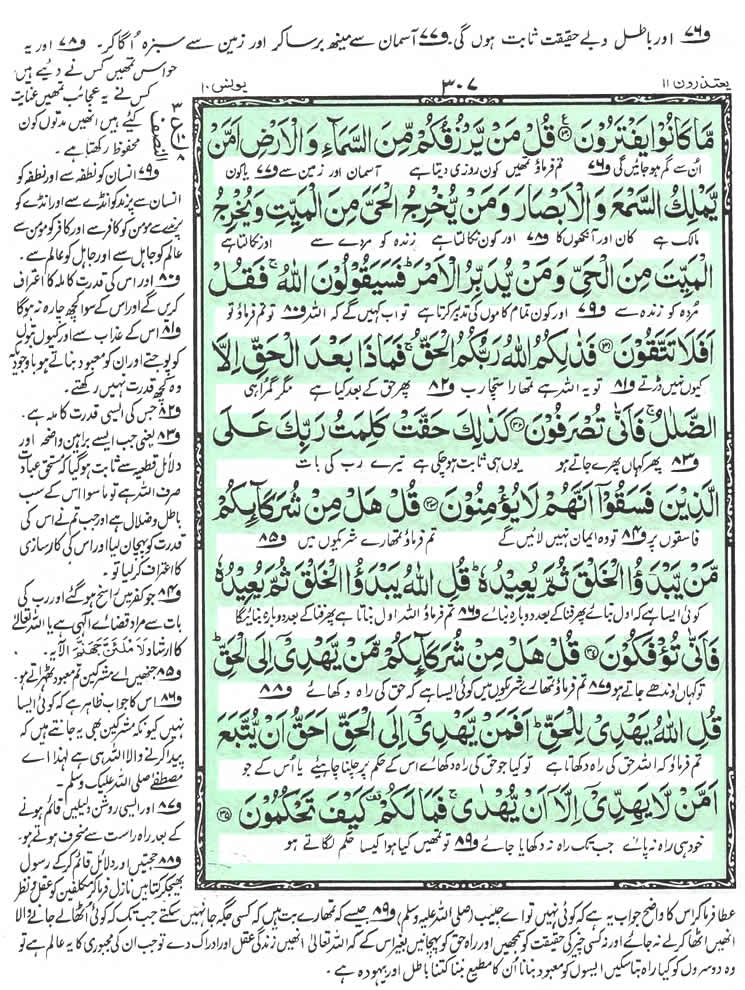 و۷۶ اور باطل و بے حقیقت ثابت ہوں گی۔ و۷۷ آسمان سے مینھ برسا کر اور زمین سے سبزہ اُگا کر۔ و۷۸ اور یہ
یعتذرون ۱۱
۳۰۷
یونس ۱۰
مَّا كَانُوا يَفْتَرُونَ ۝۳۰ قُلْ مَن يَرْزُقُكُم مِّنَ السَّمَاءِ وَالْأَرْضِ أَمَّن
اُن سے گم ہو جائیں گی و۷۶ تم فرماؤ تمھیں کون روزی دیتا ہے آسمان اور زمین سے و۷۷ یا کون
يَمْلِكُ السَّمْعَ وَالْأَبْصَارَ وَمَن يُخْرِجُ الْحَيَّ مِنَ الْمَيِّتِ وَيُخْرِجُ
مالک ہے کان اور آنکھوں کا و۷۸ اور کون نکالتا ہے زندہ کو مردے سے اور نکالتا ہے
الْمَيِّتَ مِنَ الْحَيِّ وَمَن يُدَبِّرُ الْأَمْرَ ۚ فَسَيَقُولُونَ اللَّهُ ۚ فَقُلْ
مُردہ کو زندہ سے و۷۹ اور کون تمام کاموں کی تدبیر کرتا ہے تو اب کہیں گے کہ اللہ و۸۰ تو تم فرماؤ تو
أَفَلَا تَتَّقُونَ ۝۳۱ فَذَٰلِكُمُ اللَّهُ رَبُّكُمُ الْحَقُّ ۖ فَمَاذَا بَعْدَ الْحَقِّ إِلَّا
کیوں نہیں ڈرتے و۸۱ تو یہ اللہ ہے تمھارا سچا رب و۸۲ پھر حق کے بعد کیا ہے مگر گمراہی
الضَّلَالُ ۖ فَأَنَّىٰ تُصْرَفُونَ ۝۳۲ كَذَٰلِكَ حَقَّتْ كَلِمَتُ رَبِّكَ عَلَى
و۸۳ پھر کہاں پھرے جاتے ہو یوں ہی ثابت ہو چکی ہے تیرے رب کی بات
الَّذِينَ فَسَقُوا أَنَّهُمْ لَا يُؤْمِنُونَ ۝۳۳ قُلْ هَلْ مِن شُرَكَائِكُم
فاسقوں پر و۸۴ تو وہ ایمان نہیں لائیں گے تم فرماؤ تمھارے شریکوں میں و۸۵
مَّن يَبْدَؤُا الْخَلْقَ ثُمَّ يُعِيدُهُ ۚ قُلِ اللَّهُ يَبْدَؤُا الْخَلْقَ ثُمَّ يُعِيدُهُ
کوئی ایسا ہے کہ اول بنائے پھر فنا کے بعد دوبارہ بنائے و۸۶ تم فرماؤ اللہ اول بناتا ہے پھر فنا کے بعد دوبارہ بنائیگا
فَأَنَّىٰ تُؤْفَكُونَ ۝۳۴ قُلْ هَلْ مِن شُرَكَائِكُم مَّن يَهْدِي إِلَى الْحَقِّ
تو کہاں اوندھے جاتے ہو و۸۷ تم فرماؤ تمھارے شریکوں میں کوئی ایسا ہے کہ حق کی راہ دکھائے و۸۸
قُلِ اللَّهُ يَهْدِي لِلْحَقِّ ۗ أَفَمَن يَهْدِي إِلَى الْحَقِّ أَحَقُّ أَن يُتَّبَعَ
تم فرماؤ کہ اللہ حق کی راہ دکھاتا ہے تو کیا جو حق کی راہ دکھائے اس کے حکم پر چلنا چاہیئے یا اُس کے جو
أَمَّن لَّا يَهِدِّي إِلَّا أَن يُهْدَىٰ ۖ فَمَا لَكُمْ كَيْفَ تَحْكُمُونَ ۝۳۵
خود ہی راہ نہ پائے جب تک راہ نہ دکھایا جائے و۸۹ تو تمھیں کیا ہوا کیسا حکم لگاتے ہو
حواس تمھیں کس نے دئیے ہیں
کس نے یہ عجائب تمھیں عنایت
کیٔے ہیں انھیں مدتوں کون
محفوظ رکھتا ہے۔
النصف
و۷۹ انسان کو نطفہ سے اور نطفہ کو
انسان سے پرند کو انڈے سے اور انڈے کو
پرندے سے مومن کو کافر سے اور کافر کو مومن سے
عالم کو جاہل سے اور جاہل کو عالم سے۔
و۸۰ اور اس کی قدرت کاملہ کا اعتراف
کریں گے اور اس کے سوا کچھ چارہ نہ ہوگا
و۸۱ اس کے عذاب سے اور کیوں بتوں
کو پوجتے اور ان کو معبود بناتے ہو باوجودیکہ
وہ کچھ قدرت نہیں رکھتے۔
و۸۲ جس کی ایسی قدرت کاملہ ہے۔
و۸۳ یعنی جب ایسے براہین واضحہ اور
دلائل قطعیہ سے ثابت ہو گیا کہ مستحق عبادت
صرف اللہ ہے تو ماسوا اس کے سب
باطل و ضلال ہے اور جب تم نے اس کی
قدرت کو پہچان لیا اور اس کی کارسازی
کا اعتراف کر لیا تو۔
و۸۴ جو کفر میں راسخ ہو گئے اور رب کی
بات سے مراد قضائے الٰہی ہے یا اللہ تعالیٰ
کا ارشاد لَاَمْلَئَنَّ جَهَنَّمَ الآیہ۔
و۸۵ جنھیں اے مشرکین تم معبود ٹھہراتے ہو۔
و۸۶ اس کا جواب ظاہر ہے کہ کوئی ایسا
نہیں کیونکہ مشرکین بھی یہ جانتے ہیں کہ
پیدا کرنے والا اللہ ہی ہے لہذا اے
مصطفےٰ صلی اللہ علیک وسلم۔
و۸۷ اور ایسی روشن دلیلیں قائم ہونے
کے بعد راہ راست سے منحرف ہوتے ہو۔
و۸۸ حجتیں اور دلائل قائم کر کے رسول
بھیج کر کتابیں نازل فرما کر مکلفین کو عقل و نظر
عطا فرما کر اس کا واضح جواب یہ ہے کہ کوئی نہیں تو اے حبیب (صلی اللہ علیہ وسلم) و۸۹ جیسے کہ تمھارے بت ہیں کہ کسی جگہ جا نہیں سکتے جب تک کہ کوئی اُٹھا لے جانے والا
انھیں اٹھا کر لے نہ جائے اور نہ کسی چیز کی حقیقت کو سمجھیں اور راہ حق کو پہچانیں بغیر اس کے کہ اللہ تعالیٰ انھیں زندگی عقل اور ادراک دے تو جب ان کی مجبوری کا یہ عالم ہے تو
وہ دوسروں کو کیا راہ بتا سکیں ایسوں کو معبود بنانا اُن کا مطیع بننا کتنا باطل اور بیہودہ ہے۔